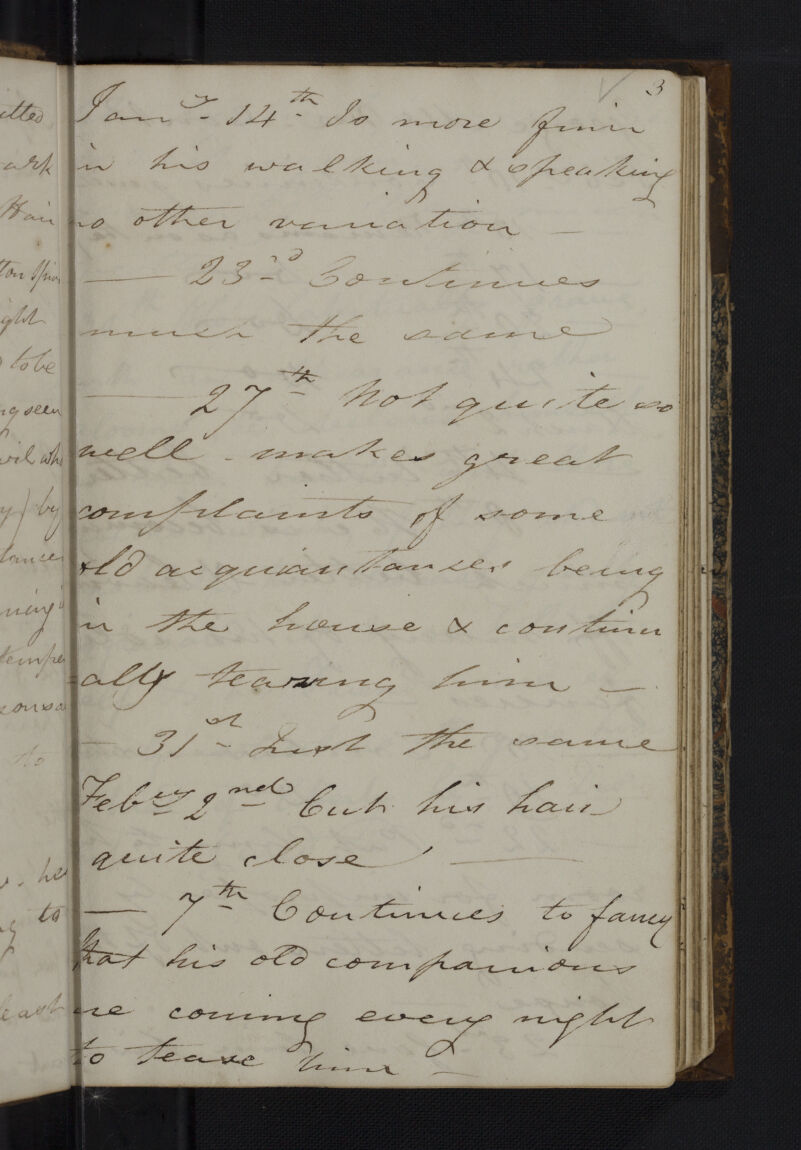 3
Jany 14th Is more firm
in his walking & speaking
no other variation —
— 23rd Continues
much the same
— 27th Not quite so
well - makes great
complaints of some
old acquiantances being
in the house & continu
=ally teazing him —
— 31st Just the same
Febry 2nd Cut his hair
quite close —
— 7th Continues to fancy
that his old companions
are coming every night
to tease him —